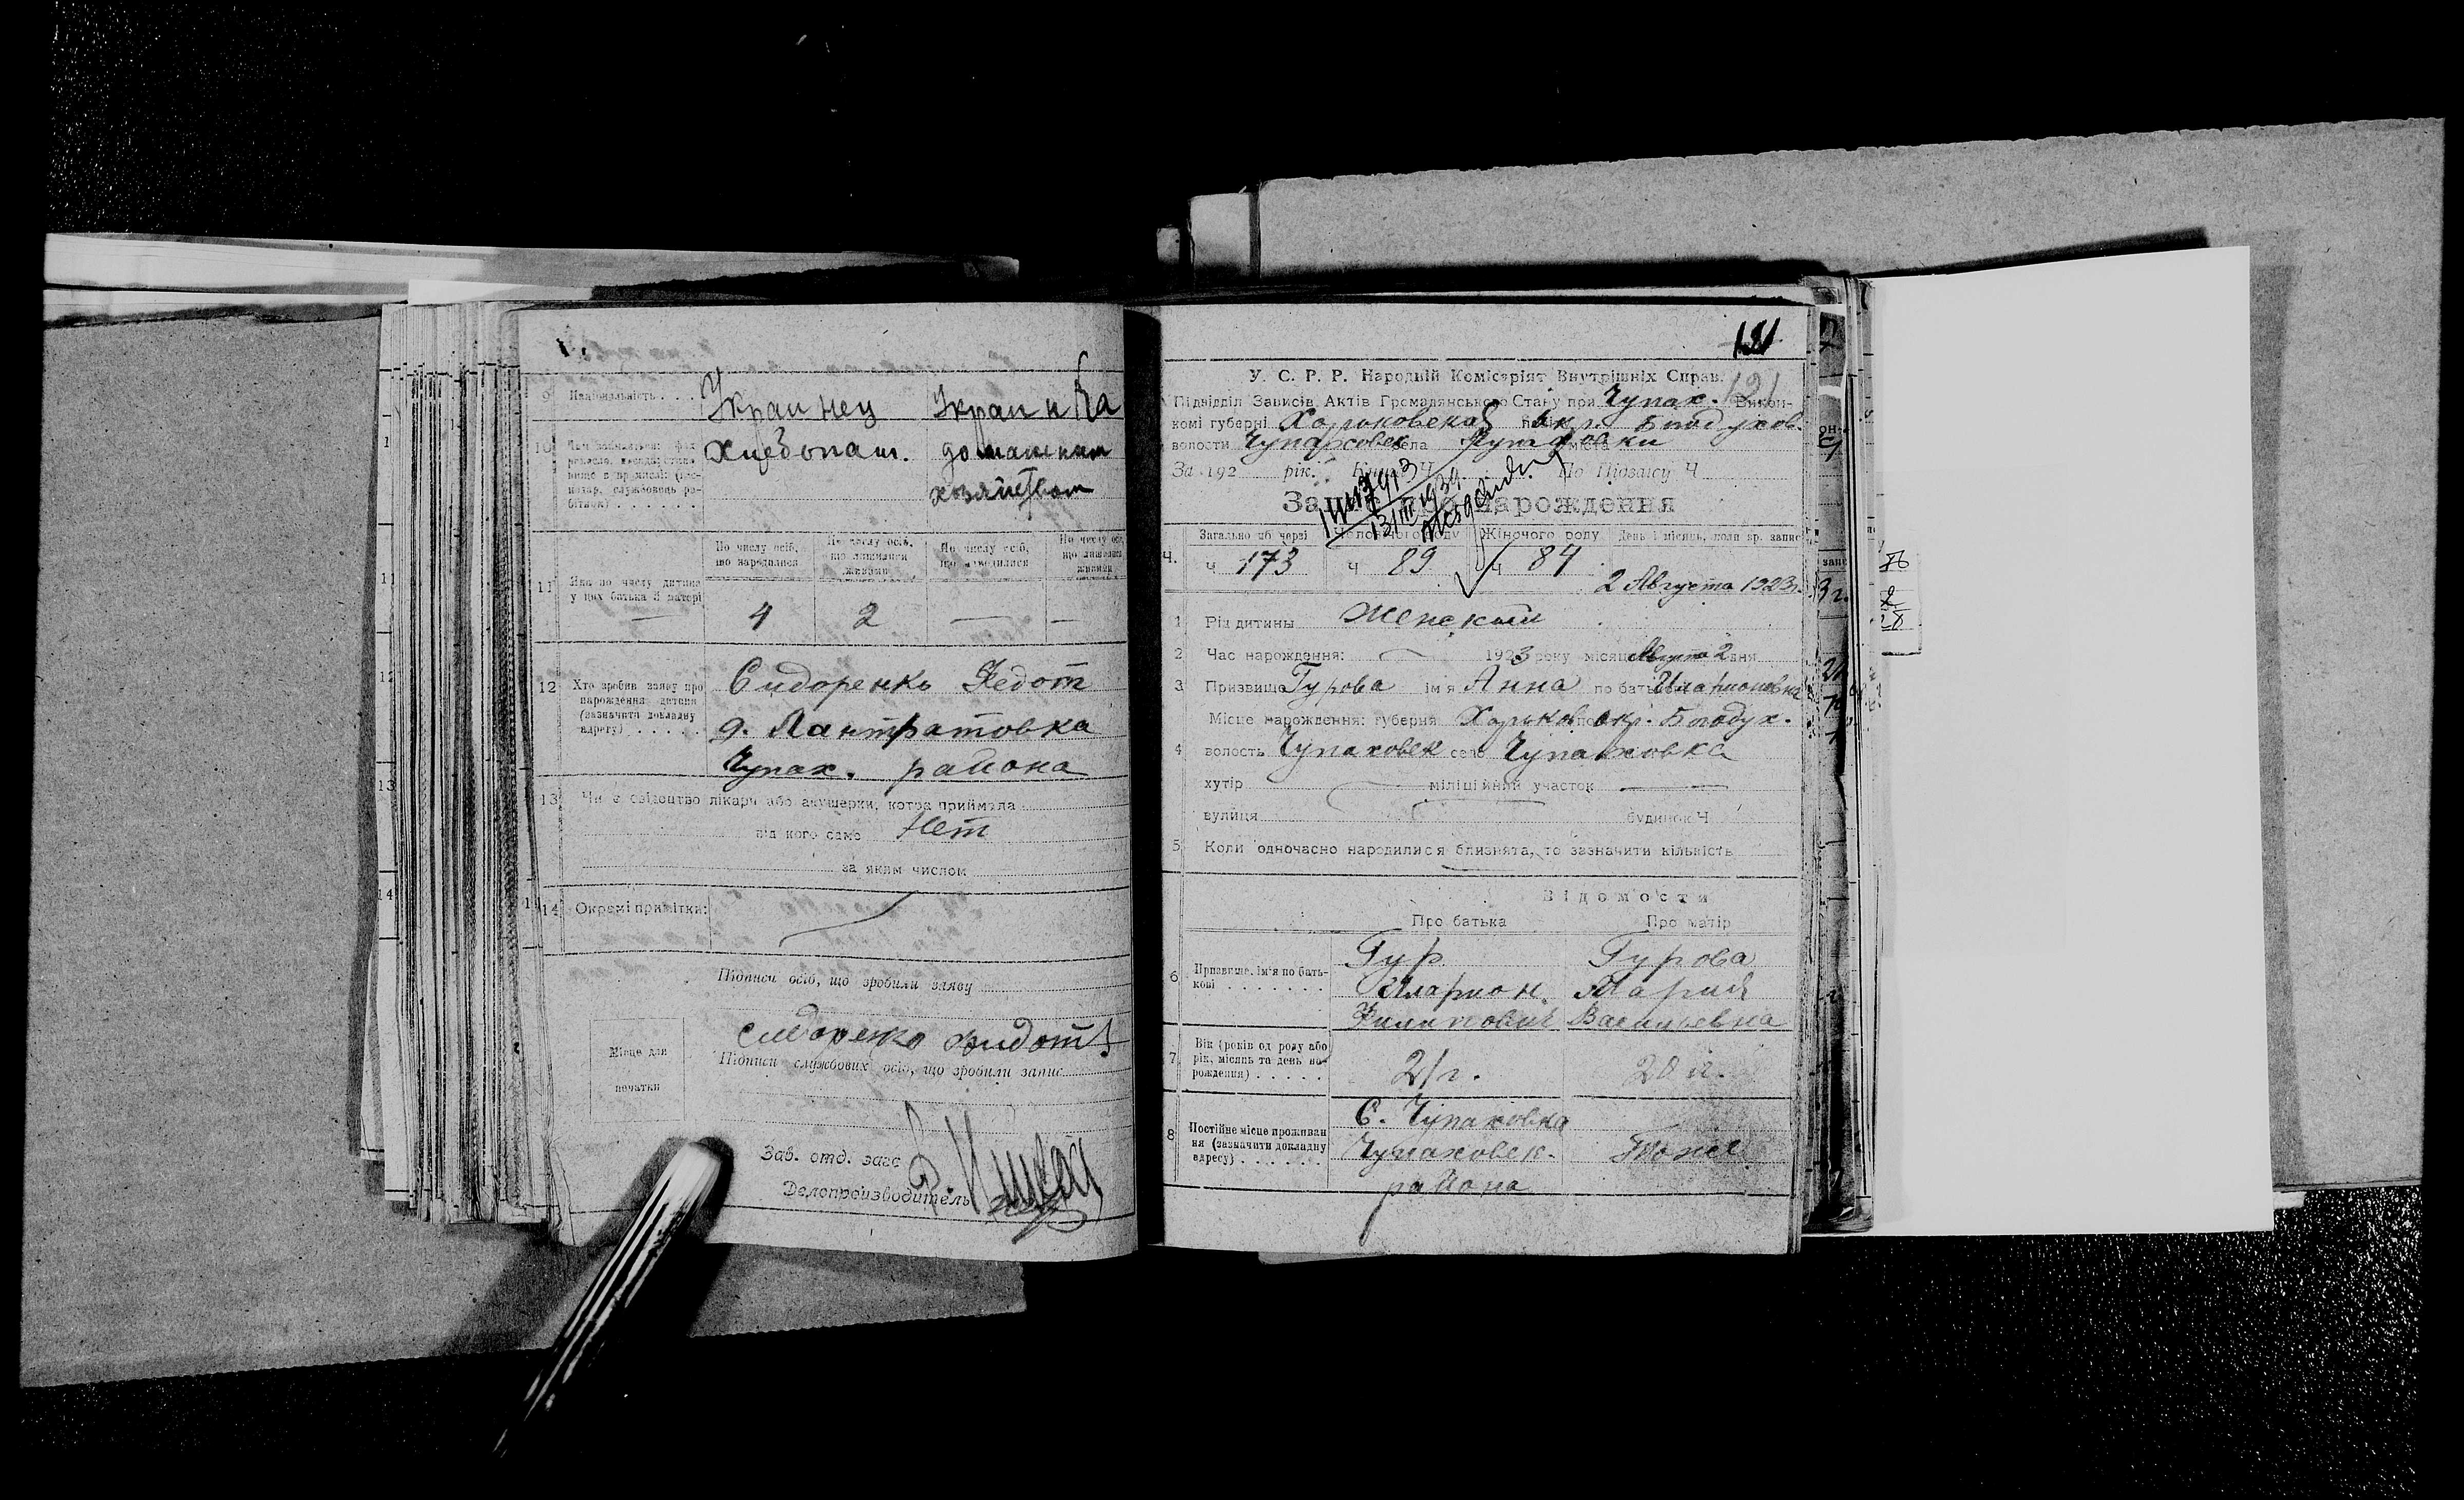 9 Національність . . . Украинец Украинка
10 Хлебопаш. домашним
хозяйством
По числу осіб, що народилися
По числу осіб, що лишилися живими
По числу осіб, що народилися
По числу осіб, що лишилися живими
11 Яка по числу дитина у цих батька й матері
4 2 — —
12 Хто зробив заяву про народження дитини (зазначити докладну адресу) . . . . .
Сидоренко Федот
д. Лантратовка
Чупах. района
13 Чи є свідоцтво лікаря або акушерки, котра приймала
від кого саме Нет
за яким числом
14 Окремі примітки:
Підписи осіб, що зробили заяву
Місце для печатки
Підписи службових осіб, що зробили запис
Зав. отд. загс
Делопроизводитель
121
У. С. Р. Р. Народній Комісаріят Внутрішніх Справ. 121
Підвідділ Записів Актів Громадянського Стану при Чупах. Викон-
комі губерні Харьковской окр. Богодухов.
волости Чупаховск села Чупаховки міста
За 192 рік. Книга Ч По Підпису Ч
13/III 1939
Запис про народження
Загально об черзі Чоловічого роду Жіночого роду День і місяць, коли зр. запис
Ч. ч 173 ч 89 ч 84
2 Августа 1923г.
1 Рід дитини Женский
2 Час народження: 1923 року місяця Августа 2 дня
3 Призвище Гурова ім'я Анна по батькові Иларионовна
Місце народження: губерня Харьков окр. Богодух.
4 волость Чупаховск село Чупаховка
хутір міліційний участок
вулиця будинок Ч
5 Коли одночасно народилися близнята, то зазначити кількість
Відомости
Про батька Про матір
6 Призвище, ім'я по бать-
кові . . . . . . .
Гур Гурова
Иларион Мария
Филипович Васильевна
7 Вік (років од роду або рік, місяць та день народження) . . . . .
21 г. 20 г.
8 Постійне місце проживання (зазначити докладну адресу) . . . . . .
С. Чупаховка
Чупаховск. Тоже
района